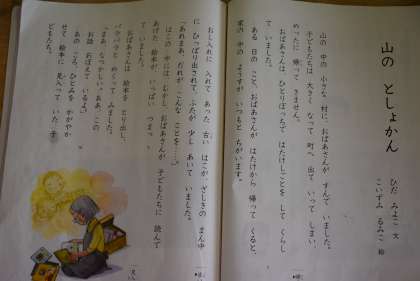 山の としょかん
ひだ みよこ 文
こいずみ るみこ 絵
山の 中の 小さな 村に、おばあさんが すんで いました。
子どもたちは 大きく なって 町へ 出て いって しまい、
めったに 帰って きません。
おばあさんは ひとりぼっちで はたけしごとを して くらし
て いました。
ある 日の こと、おばあさんが はたけから 帰って くると、
家の 中の ようすが いつもと ちがいます。
おし入れに 入れて あった 古い はこが、ざしきの まん中
に ひっぱり出されて、ふたが 少し あいて いました。
「あれまあ、だれが こんな ことを……。」
はこの 中には、むかし、おばあさんが 子どもたちに 読んで
あげた 絵本が、いっぱい つまっ
て いました。
おばあさんは 絵本を とり出し、
パラパラと めくって みました。
「まあ、なつかしい。ああ、この
お話、おぼえて いるよ。」
あの ころ、ひとみを かがやか
せて 絵本に 見入って いた 子
どもたち。